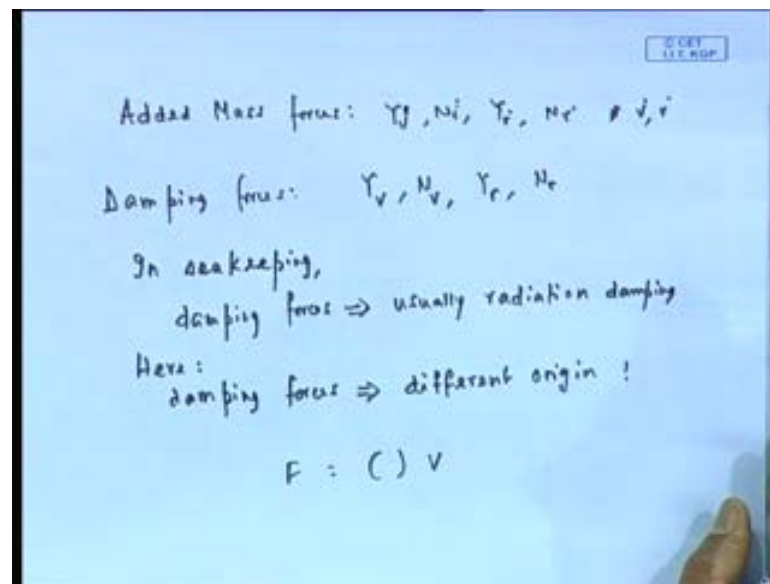 © CET
I.I.T. KGP
Added Mass forces: Yv̇, Nv̇, Yṙ, Nṙ v̇, ṙ
Damping forces: Yv, Nv, Yr, Nr
In seakeeping,
damping forces ⇒ usually radiation damping
Here:
damping forces ⇒ different origin !
F = ( ) v